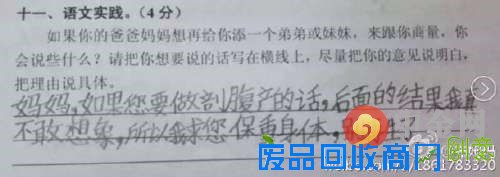 十一、语文实践。(4分)
如果你的爸爸妈妈想再给你添一个弟弟或妹妹,来跟你商量,你
会说些什么?请把你想要说的话写在横线上,尽量把你的意见说明白,
把理由说具体。
妈妈,如果您要做剖腹产的话,后面的结果我真
不敢想象,所以我求您保重身体,
废品回收商网